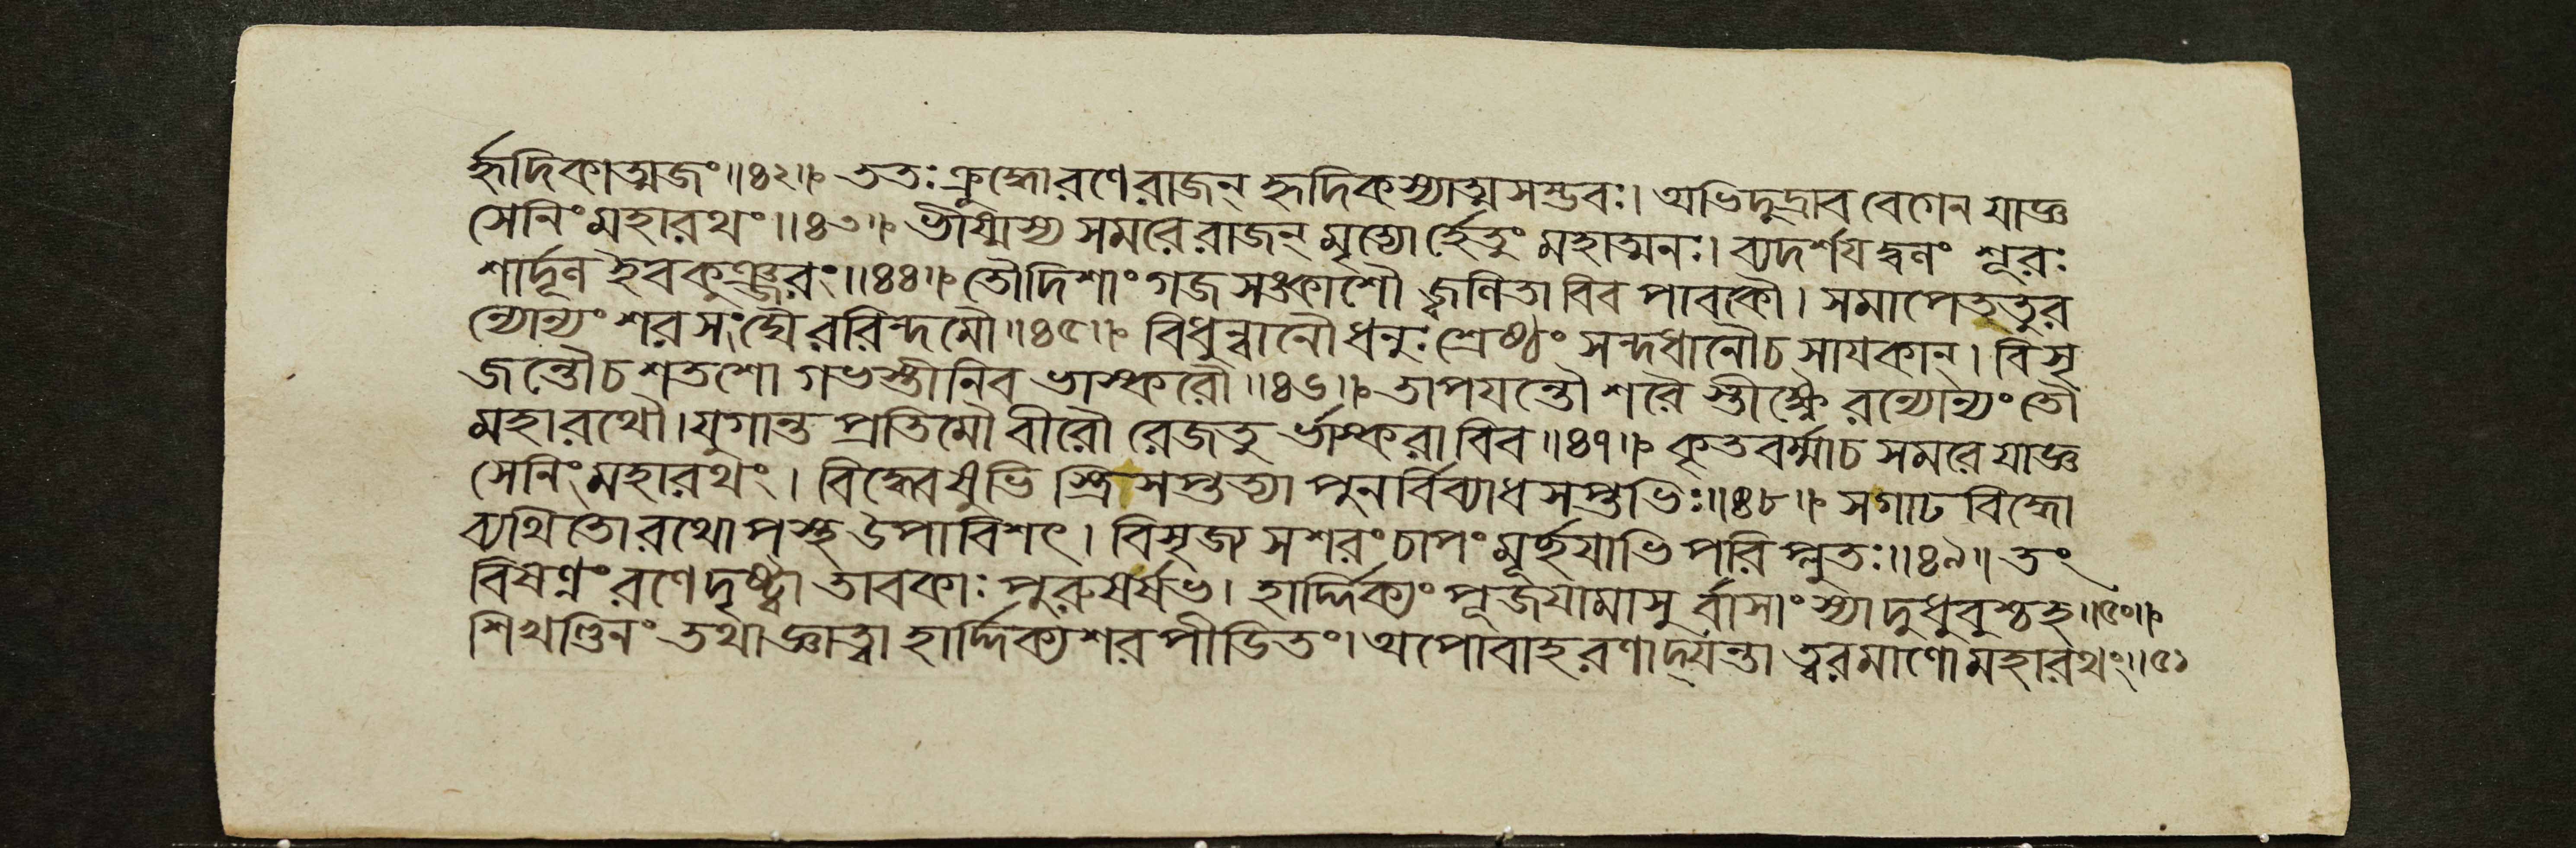 র্হৃদিকাত্মজং॥৪২॥ ততঃ ক্রুদ্ধো রণে রাজন্ হৃদিকস্যাত্মসম্ভবঃ। অভিদুদ্রাব বেগেন যাজ্ঞ
সেনিং মহারথং॥৪৩॥ ভীষ্মস্য সমরে রাজন্ মৃত্যোর্হেতুং মহাত্মনঃ। ব্যদর্শযদ্বলং শূরঃ
শার্দূল ইব কুঞ্জরং॥৪৪॥ তৌ দিশাং গজসঙ্কাশৌ জ্বলিতাবিব পাবকৌ। সমাপেততুর
ন্যোন্যং শরসংঘৈররিন্দমৌ॥৪৫॥ বিধুন্বানৌ ধনুঃশ্রেষ্ঠং সন্দধানৌ চ সাযকান্। বিসৃ
জন্তৌ চ শতশো গভস্তীনিব ভাস্করৌ॥৪৬॥ তাপযন্তৌ শরৈস্তীক্ষ্ণৈরন্যোন্যং তৌ
মহারথৌ। যুগান্তপ্রতিমৌ বীরৌ রেজতুর্ভাস্করাবিব॥৪৭॥ কৃতবর্ম্মা চ সমরে যাজ্ঞ
সেনিং মহারথং। বিদ্ধ্বেষুভিস্ত্রিসপ্তত্যা পুনর্বিব্যাধ সপ্তভিঃ॥৪৮॥ স গাঢবিদ্ধো
ব্যথিতো রথোপস্থ উপাবিশৎ। বিসৃজ্য সশরং চাপং মূর্চ্ছযাভিপরিপ্লুতঃ॥৪৯॥ তং
বিষণ্নং রণে দৃষ্ট্বা তাবকাঃ পুরুষর্ষভ। হার্দ্দিক্যং পূজযামাসুর্বাসাংস্যাদুধুবুশ্চ হ॥৫০॥
শিখণ্ডিনং তথা জ্ঞাত্বা হার্দ্দিক্যশরপীডিতং। অপোবাহ রণাদ্যন্তা ত্বরমাণো মহারথং॥৫১